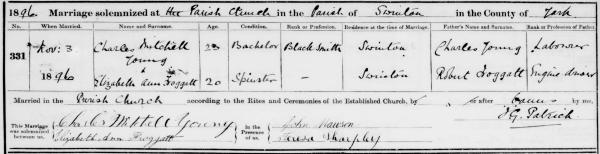 1896. Marriage solemnized at the Parish Church in the Parish of Swinton in the County of York
No. When Married. Name and Surname. Age. Condition. Rank or Profession. Residence at the time of Marriage. Father's Name and Surname. Rank or Profession of Father.
331 Nov: 3. Charles Mitchell Young 23 Bachelor Black Smith Swinton Charles Young Labourer
1896 & Elizabeth Ann Froggatt 20 Spinster — Swinton Robert Froggatt Engine driver
Married in the Parish Church according to the Rites and Ceremonies of the Established Church, by or after Banns by me,
This Marriage was solemnized between us, Charles Mitchell Young In the Presence of us, John Mawson J G. Patrick
Elizabeth Ann Froggatt Teresa Sharpley